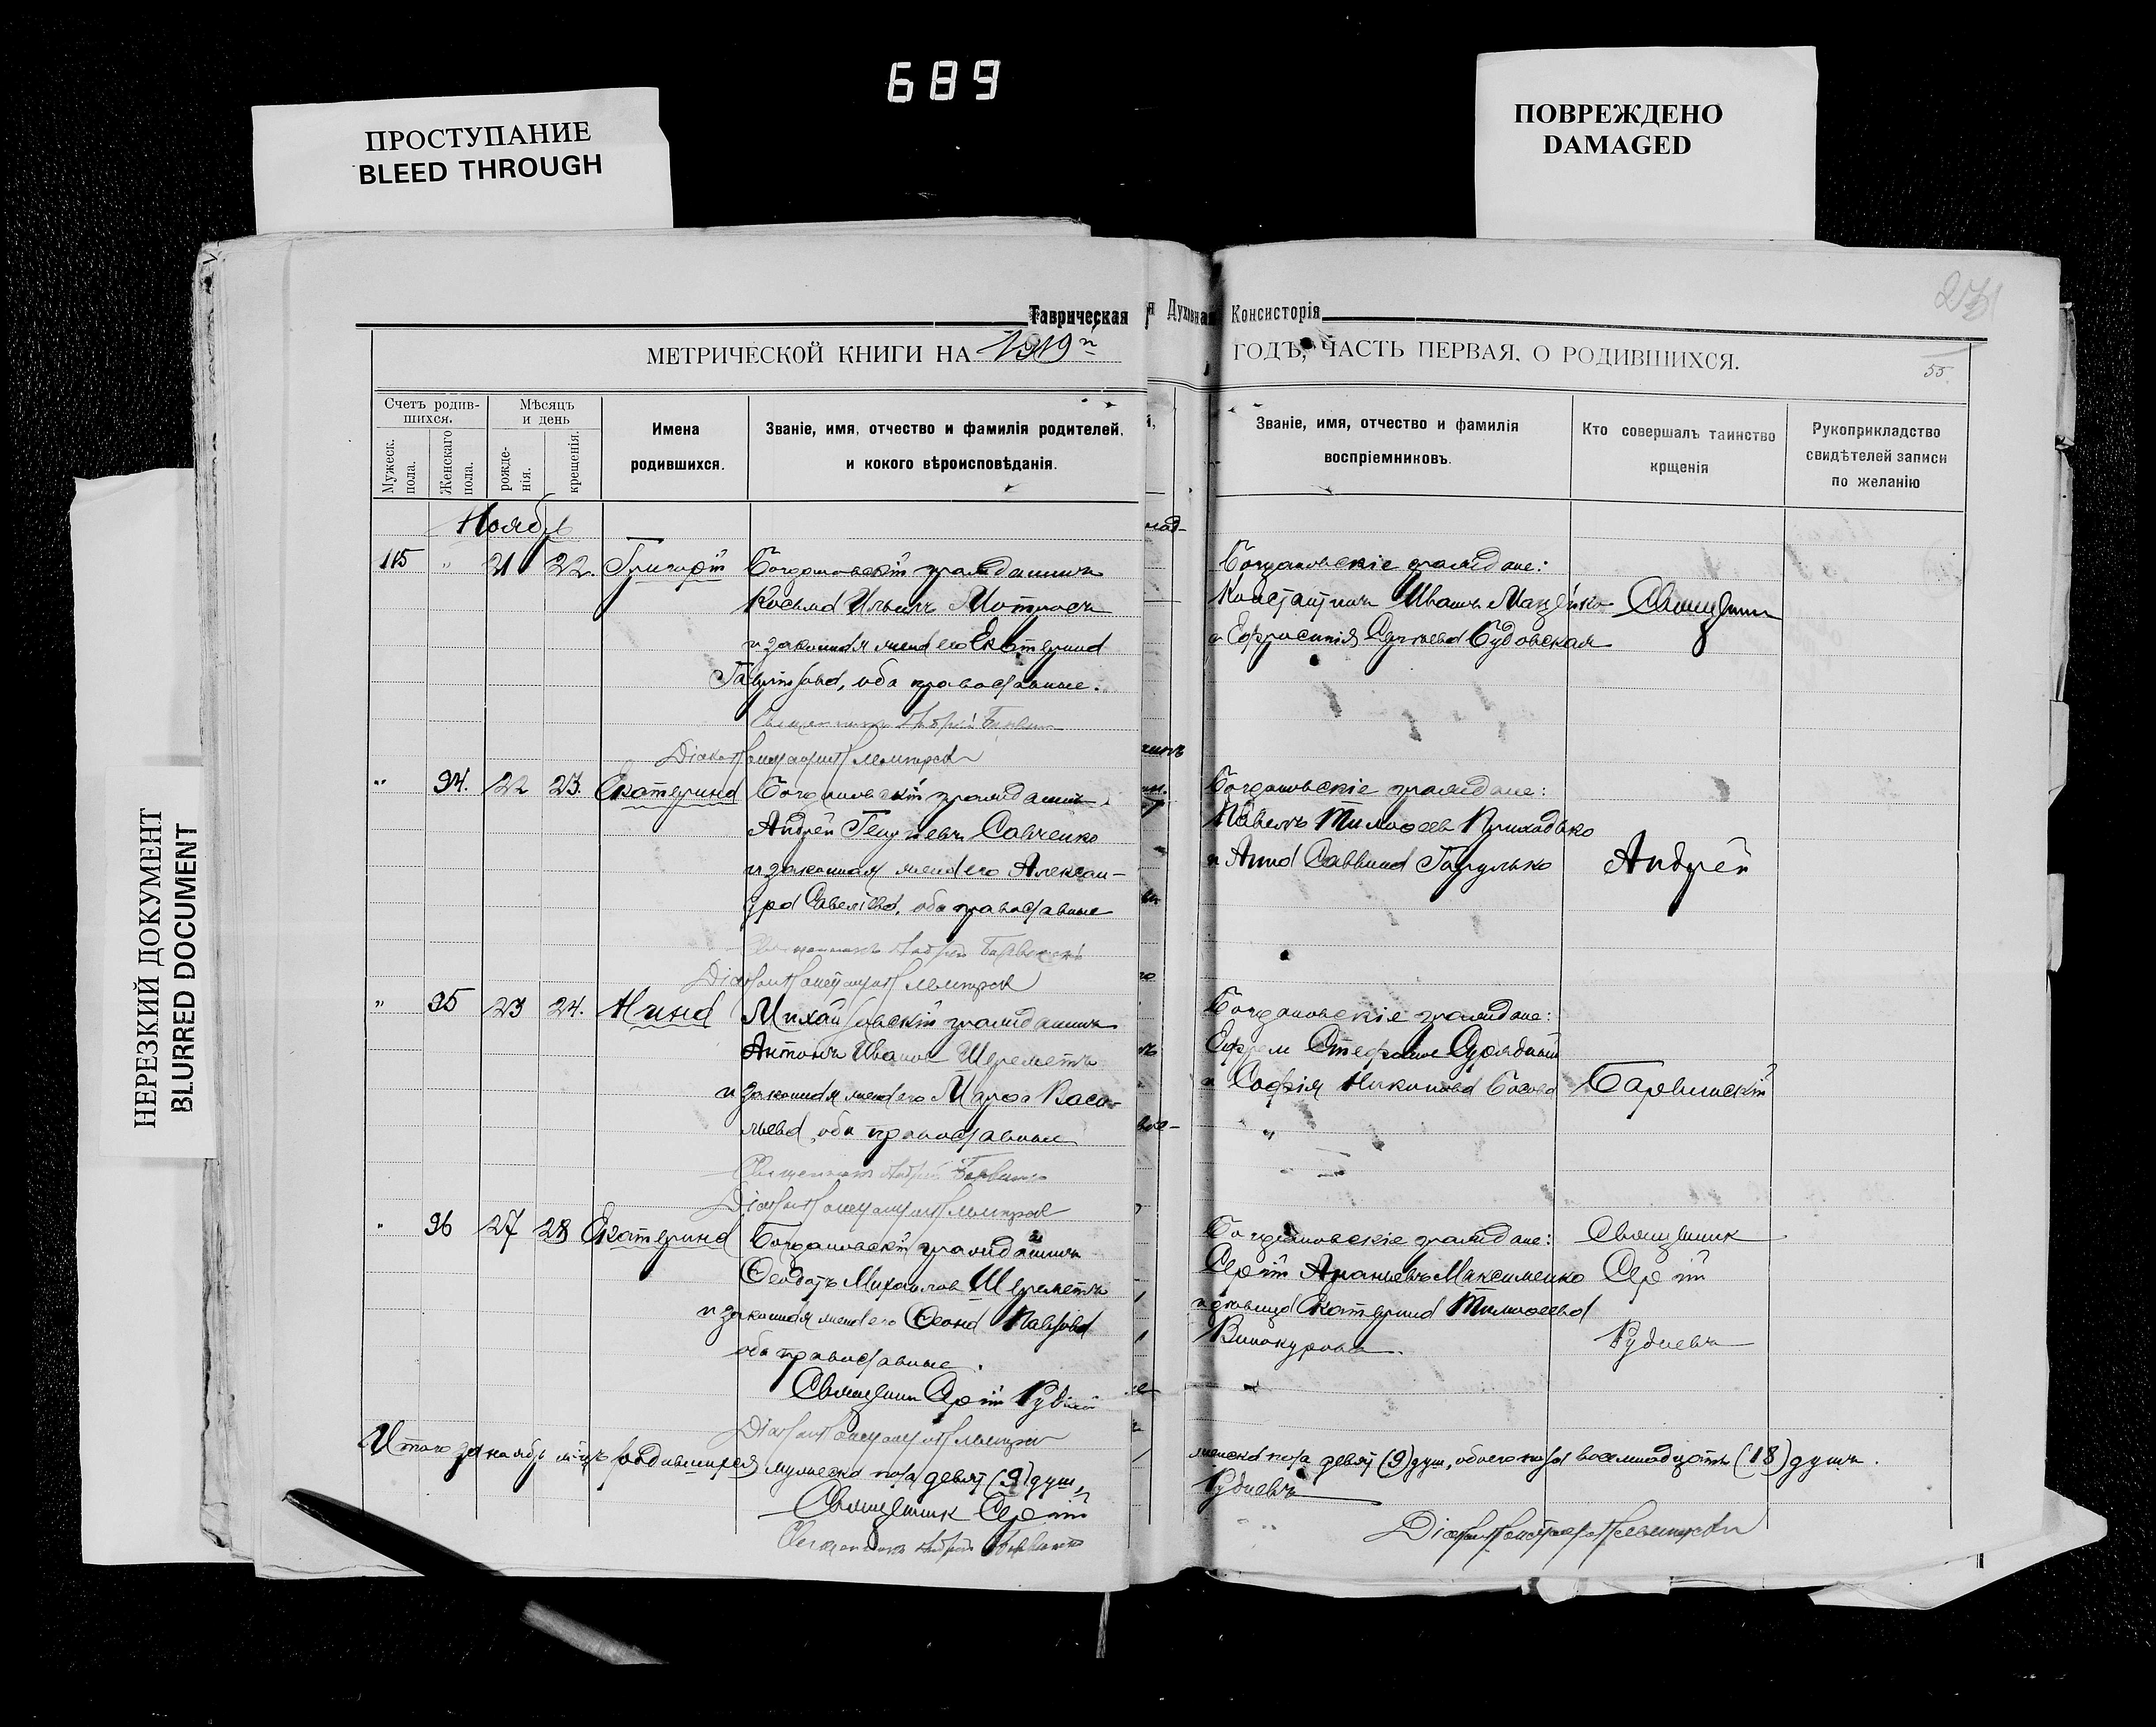 689
ПРОСТУПАНИЕ
BLEED THROUGH
ПОВРЕЖДЕНО
DAMAGED
НЕРЕЗКИЙ ДОКУМЕНТ
BLURRED DOCUMENT
Таврическая Духовная Консисторія
МЕТРИЧЕСКОЙ КНИГИ НА 1919 ГОДЪ, ЧАСТЬ ПЕРВАЯ, О РОДИВШИХСЯ.
55.
Счетъ родив-
шихся.
Мужеск.
пола.
Женскаго
пола.
Мѣсяцъ
и день
рожде-
нія.
крещенія.
Имена
родившихся.
Званіе, имя, отчество и фамилія родителей,
и кокого вѣроисповѣданія.
Званіе, имя, отчество и фамилія
воспріемниковъ.
Кто совершалъ таинство
крщенія
Рукоприкладство
свидѣтелей записи
по желанію
Ноябрь
115 " 21 22. Григорій Богдановскій гражданинъ
Косьма Ильинъ Мотросъ
и законная жена его Екатерина
Гаврилова, оба православные.
Священникъ Андрей
Діаконъ
Богдановскіе граждане:
Константинъ Ивановъ
и Ефросинія Сергѣева Будовская
Священникъ
" 94. 22 23. Екатерина Богдановскій гражданинъ
Андрей Георгіевъ Савченко
и законная жена его Алексан-
дра Савеліева, оба православные
Священникъ Андрей Барвинскій
Діаконъ
Богдановскіе граждане:
Павелъ Тимоѳеев Приходько
и Анна Саввина
Андрей
" 95 23 24. Нина Михайловскій гражданинъ
Антонъ Иванов Шереметъ
и законная жена его Марѳа Васи-
льева, оба православные
Священникъ Андрей
Діаконъ
Богдановскіе граждане:
Ефрем Стефанов
и Софія
Барвинскій
" 96 27 28 Екатерина Богдановскій гражданинъ
Ѳеодотъ Михаилов Шереметъ
и законная жена его Ѳеона Павлова
оба православные.
Священник Сергій Руднев
Діаконъ
Богдановскіе граждане:
Сергій Ананьевъ Максименко
и дѣвица Екатерина Тимоѳеева
Винокурова.
Священник
Сергій
Рудневъ
Итого за ноябрь м-цъ родившихся мужеска пола девять (9) душ, женска пола девять (9) душ, обоего пола восемнадцать (18) душъ.
Священник Сергій Рудневъ
Священникъ Андрей
Діаконъ